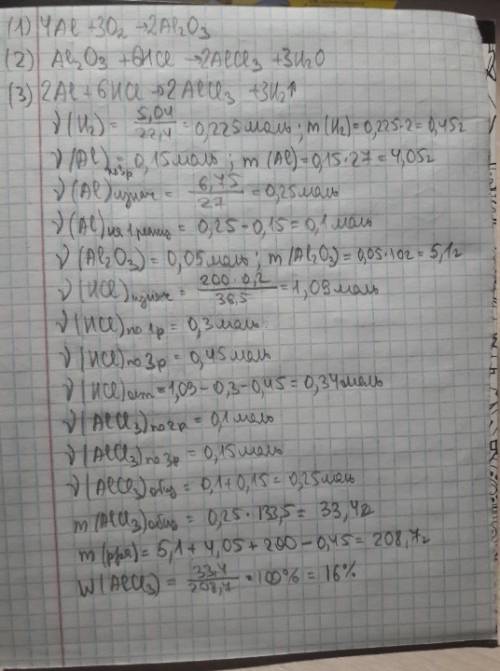 (1) 4Al + 3O₂ → 2Al₂O₃
(2) Al₂O₃ + 6HCl → 2AlCl₃ + 3H₂O
(3) 2Al + 6HCl → 2AlCl₃ + 3H₂↑
ν(H₂) = 5,04/22,4 = 0,225моль; m(H₂) = 0,225·2 = 0,45г
ν(Al)по3р = 0,15моль; m(Al) = 0,15·27 = 4,05г
ν(Al)изнач = 6,75/27 = 0,25моль
ν(Al)на 1 реакц = 0,25 - 0,15 = 0,1 моль
ν(Al₂O₃) = 0,05моль; m(Al₂O₃) = 0,05·102 = 5,1г
ν(HCl)изнач = 200·0,2/36,5 = 1,09моль
ν(HCl)по 1р = 0,3моль
ν(HCl)по3р = 0,45моль
ν(HCl)ост = 1,09 - 0,3 - 0,45 = 0,34моль
ν(AlCl₃)по2р = 0,1моль
ν(AlCl₃)по3р = 0,15моль
ν(AlCl₃)общ = 0,1 + 0,15 = 0,25моль
m(AlCl₃)общ = 0,25·133,5 = 33,4г
m(рра) = 5,1 + 4,05 + 200 - 0,45 = 208,7г
W(AlCl₃) = 33,4/208,7 · 100% = 16%